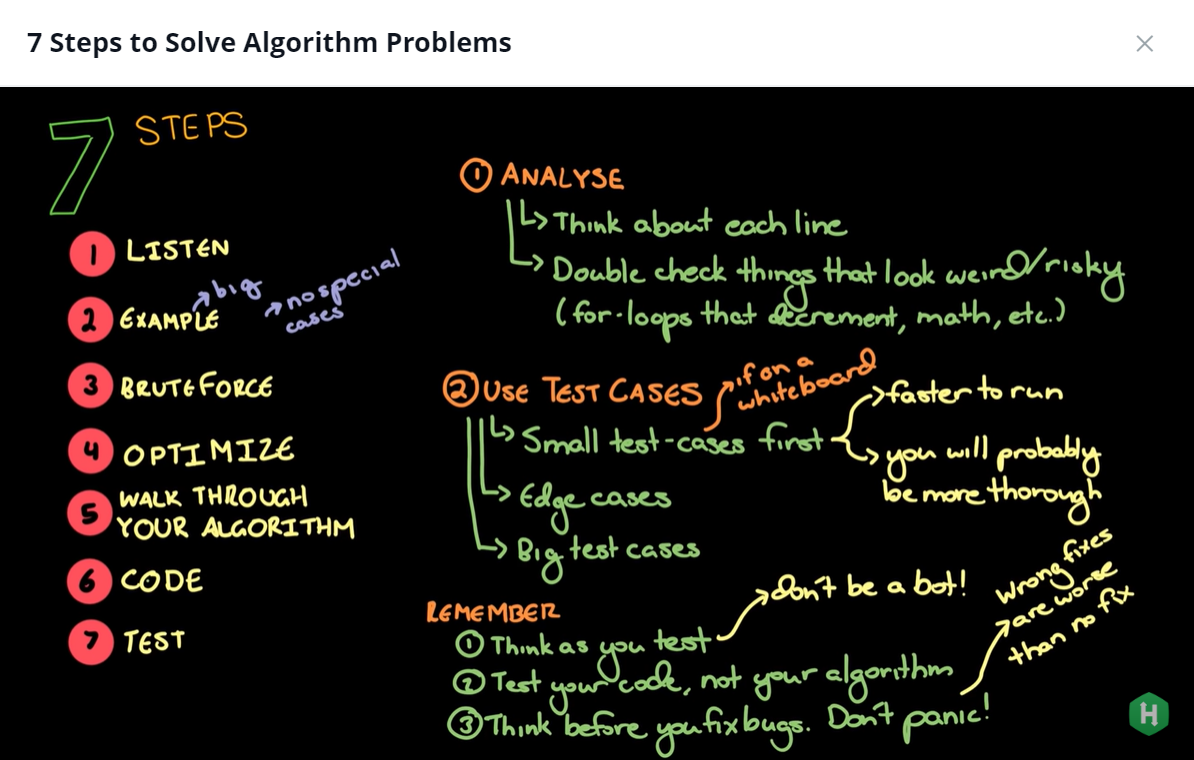 7 Steps to Solve Algorithm Problems
7 STEPS
1 LISTEN
2 EXAMPLE
big
no special
cases
3 BRUTE FORCE
4 OPTIMIZE
5 WALK THROUGH
YOUR ALGORITHM
6 CODE
7 TEST
1 ANALYSE
Think about each line
Double check things that look weird/risky
(for-loops that decrement, math, etc.)
2 USE TEST CASES
if on a
whiteboard
Small test-cases first
faster to run
you will probably
be more thorough
Edge cases
Big test cases
REMEMBER
1 Think as you test
don't be a bot!
2 Test your code, not your algorithm
3 Think before you fix bugs. Don't panic!
wrong fixes
are worse
than no fix
H